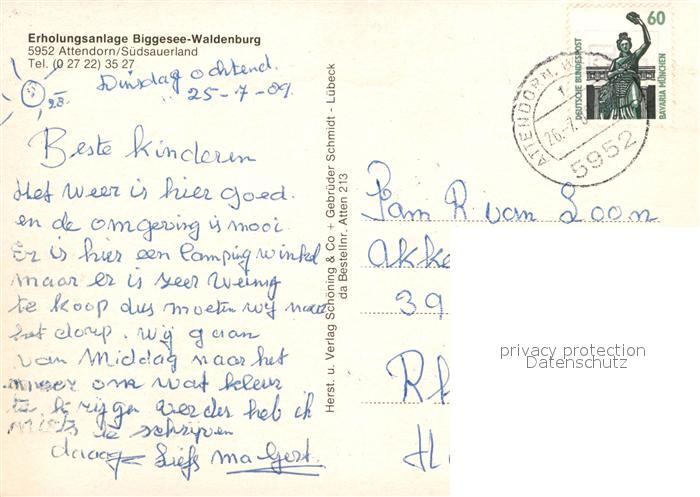 Erholungsanlage Biggesee-Waldenburg
5952 Attendorn/Südsauerland
Tel. (0 27 22) 35 27
Dinsdag ochtend.
25-7-89.
28
Beste kinderen
Het weer is hier goed.
en de omgeving is mooi
Er is hier een Camping winkel
maar er is zeer weinig
te koop dus moeten wij naar
het dorp. wij gaan
van Middag naar het
meer om wat kleur
te krijgen verder heb ik
niets te schrijven
daag Liefs ma Gert.
Herst. u. Verlag Schöning & Co + Gebrüder Schmidt - Lübeck
da Bestellnr. Atten 213
60
DEUTSCHE BUNDESPOST
BAVARIA MÜNCHEN
ATTENDORN
26.-7.
5952
Fam R. van Loon
Akke
39
Rh
H
privacy protection
Datenschutz